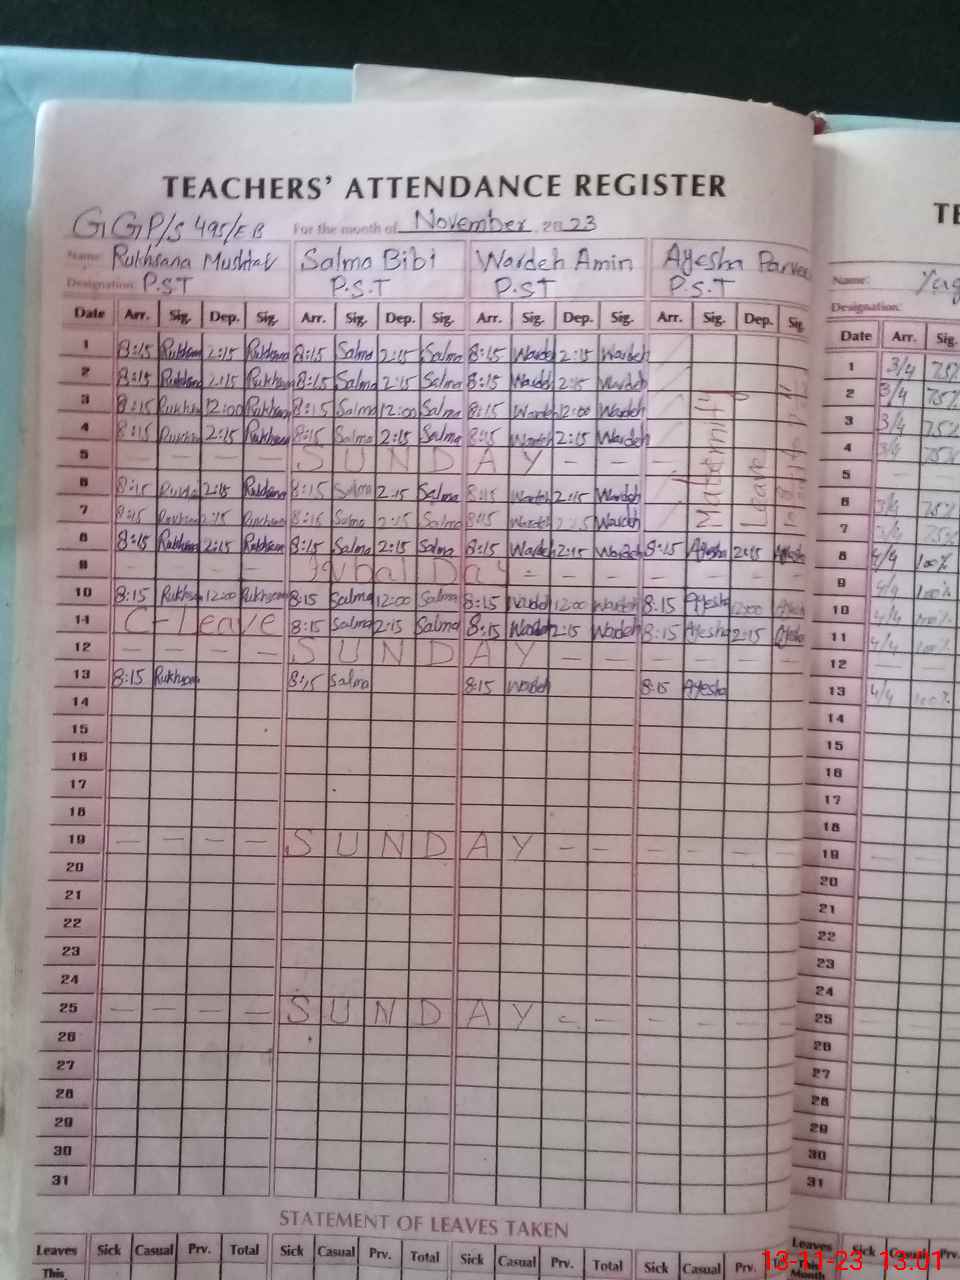 TEACHERS' ATTENDANCE REGISTER
GGP/S 495/EB For the month of November 2023
Name: Rukhsana Mushtaq Salma Bibi Wardeh Amin Ayesha Parveen
Designation: P.S.T P.S.T P.S.T P.S.T
Date Arr. Sig. Dep. Sig. Arr. Sig. Dep. Sig. Arr. Sig. Dep. Sig. Arr. Sig. Dep. Sig.
1 8:15 Rukhsana 2:15 Rukhsana 8:15 Salma 2:15 Salma 8:15 Wardeh 2:15 Wardeh
2 8:15 Rukhsana 2:15 Rukhsana 8:15 Salma 2:15 Salma 8:15 Wardeh 2:15 Wardeh
3 8:15 Rukhsana 12:00 Rukhsana 8:15 Salma 12:00 Salma 8:15 Wardeh 12:00 Wardeh
4 8:15 Rukhsana 2:15 Rukhsana 8:15 Salma 2:15 Salma 8:15 Wardeh 2:15 Wardeh
5 — — — — S U N D A Y — — —
6 8:15 Rukhsana 2:15 Rukhsana 8:15 Salma 2:15 Salma 8:15 Wardeh 2:15 Wardeh
7 8:15 Rukhsana 2:15 Rukhsana 8:15 Salma 2:15 Salma 8:15 Wardeh 2:15 Wardeh
Maternity
Leave
8 8:15 Rukhsana 2:15 Rukhsana 8:15 Salma 2:15 Salma 8:15 Wardeh 2:15 Wardeh 8:15 Ayesha 2:15 Ayesha
9 — — — — Iqbal Day — — — — — — —
10 8:15 Rukhsana 12:00 Rukhsana 8:15 Salma 12:00 Salma 8:15 Wardeh 12:00 Wardeh 8:15 Ayesha 12:00 Ayesha
11 C-Leave 8:15 Salma 2:15 Salma 8:15 Wardeh 2:15 Wardeh 8:15 Ayesha 2:15 Ayesha
12 — — — — S U N D A Y — — — — — —
13 8:15 Rukhsana 8:15 Salma 8:15 Wardeh 8:15 Ayesha
14
15
16
17
18
19 — — — — S U N D A Y — — — — — —
20
21
22
23
24
25 — — — — S U N D A Y — — — — — —
26
27
28
29
30
31
STATEMENT OF LEAVES TAKEN
Leaves Sick Casual Prv. Total Sick Casual Prv. Total Sick Casual Prv. Total Sick Casual Prv.
This
TE
Name:
Designation:
Date Arr. Sig.
1 3/4 75%
2 3/4 75%
3 3/4 75%
4 3/4 75%
5
6 3/4 75%
7 3/4 75%
8 4/4 100%
9
10 4/4 100%
11 4/4 100%
12
13 4/4 100%
14
15
16
17
18
19
20
21
22
23
24
25
26
27
28
29
30
31
Leaves Sick Casual Prv.
This
Month
13-11-23 13:01